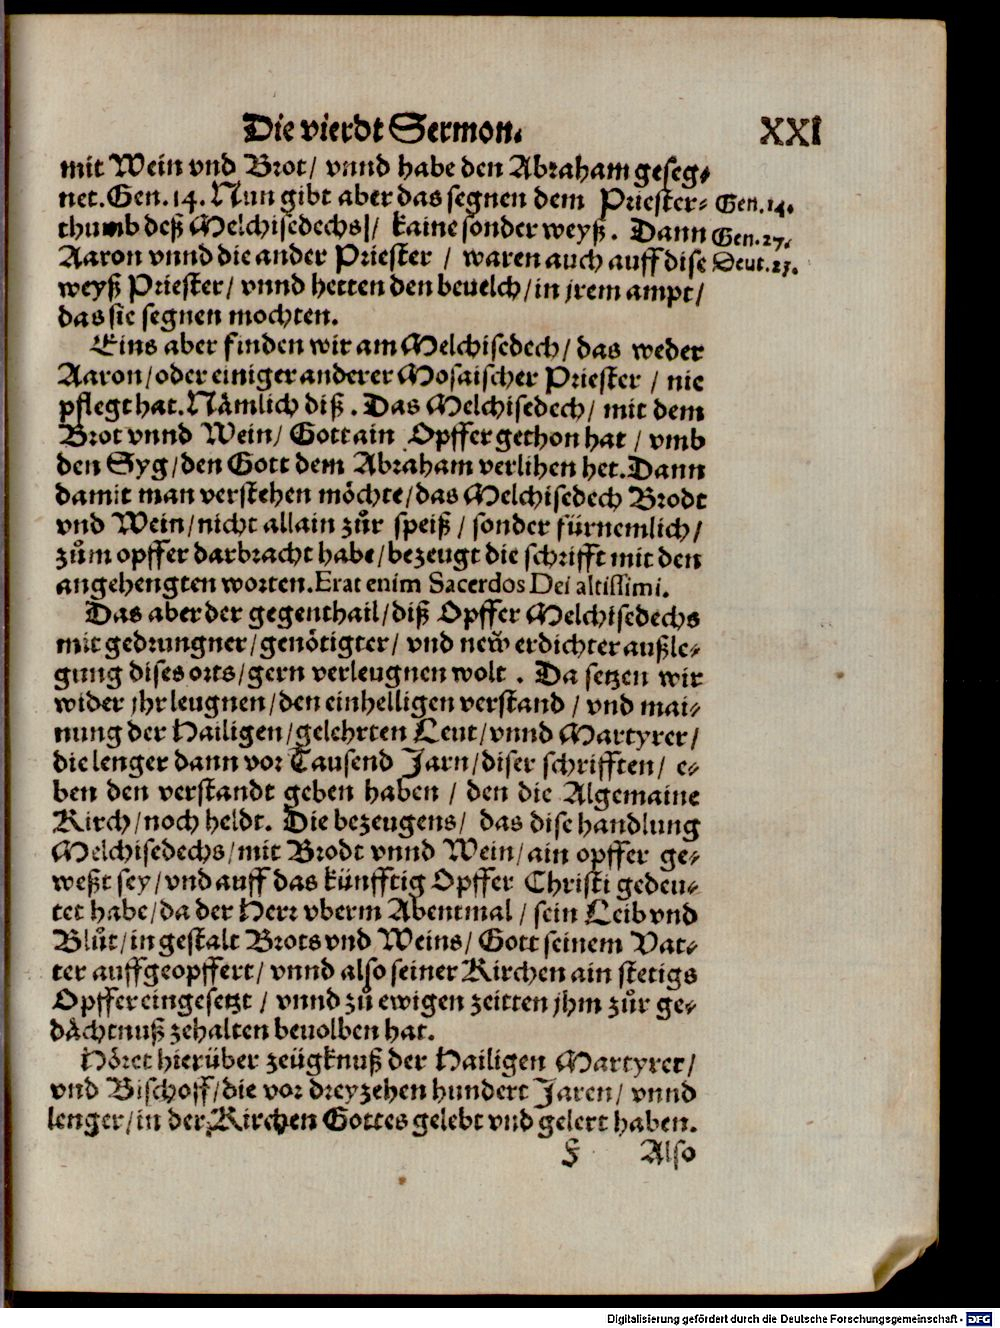 Die vierdt Sermon. XXI
mit Wein vnd Brot / vnnd habe den Abraham geseg-
net. Gen. 14. Nun gibt aber das segnen dem Priester- Gen. 14.
thumb deß Melchisedechs / kaine sonder weyß. Dann Gen. 27.
Aaron vnnd die ander Priester / waren auch auff dise Deut. 21.
weyß Priester / vnnd hetten den beuelch / in jrem ampt /
das sie segnen mochten.
Eins aber finden wir am Melchisedech / das weder
Aaron / oder einiger anderer Mosaischer Priester / nie
pflegt hat. Nämlich diß. Das Melchisedech / mit dem
Brot vnnd Wein / Gott ain Opffer gethon hat / vmb
den Syg / den Gott dem Abraham verlihen het. Dann
damit man verstehen möchte / das Melchisedech Brodt
vnd Wein / nicht allain zůr speiß / sonder fürnemlich /
zům opffer darbracht habe / bezeugt die schrifft mit den
angehengten worten. Erat enim Sacerdos Dei altissimi.
Das aber der gegenthail / diß Opffer Melchisedechs
mit gedrungner / genötigter / vnd new erdichter außle-
gung dises orts / gern verleugnen wolt. Da setzen wir
wider jhr leugnen / den einhelligen verstand / vnd mai-
nung der Hailigen / gelehrten Leut / vnnd Martyrer /
die lenger dann vor Tausend Jarn / diser schrifften / e-
ben den verstandt geben haben / den die Algemaine
Kirch / noch heldt. Die bezeugens / das dise handlung
Melchisedechs / mit Brodt vnnd Wein / ain opffer ge-
weßt sey / vnd auff das künfftig Opffer Christi gedeu-
tet habe / da der Herr vberm Abentmal / sein Leib vnd
Blůt / in gestalt Brots vnd Weins / Gott seinem Vat-
ter auffgeopffert / vnnd also seiner Kirchen ain stetigs
Opffer eingesetzt / vnnd zů ewigen zeitten jhm zůr ge-
dächtnuß zehalten beuolben hat.
Höret hierüber zeügknuß der Hailigen Martyrer /
vnd Bischoff / die vor dreyzehen hundert Jaren / vnnd
lenger / in der Kirchen Gottes gelebt vnd gelert haben.
F Also
Digitalisierung gefördert durch die Deutsche Forschungsgemeinschaft - DFG